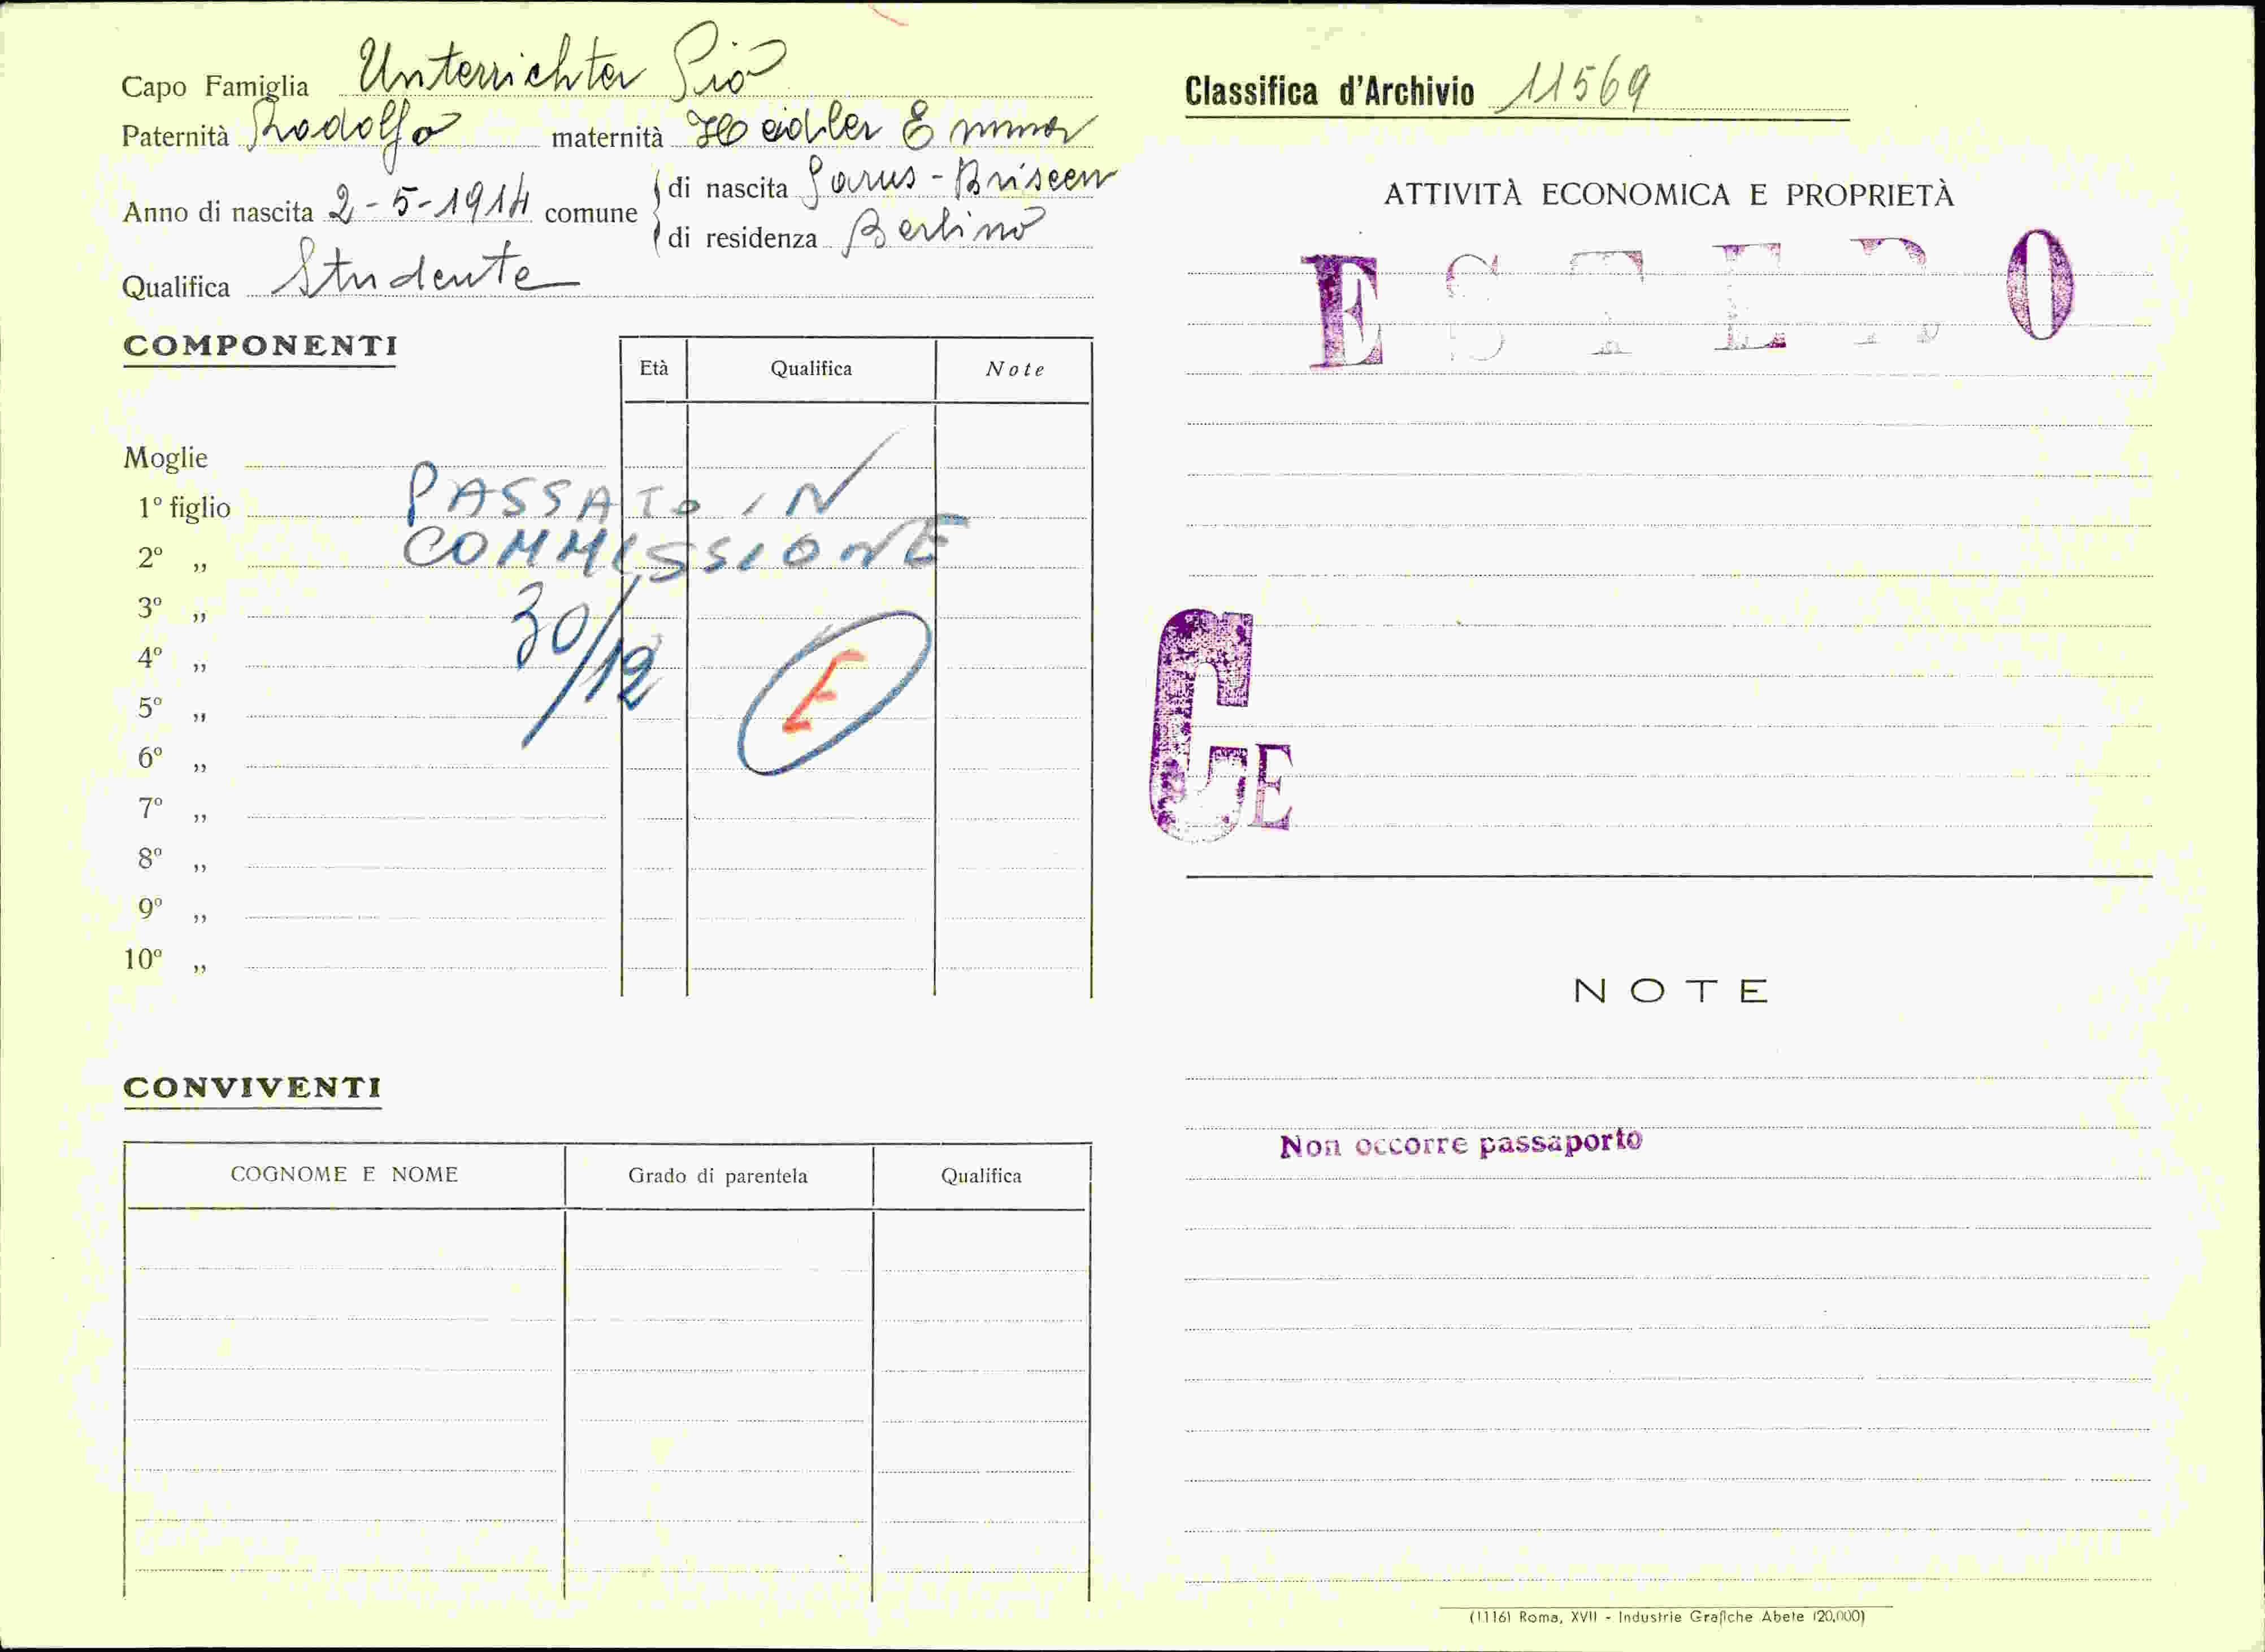 Capo Famiglia Unterrichter Pio
Paternità Rodolfo maternità Heidler Emma
Anno di nascita 2-5-1914 comune
di nascita Sarns - Brixen
di residenza Berlino
Qualifica Studente
COMPONENTI
Età Qualifica Note
Moglie
1º figlio
2º „
3º „
4º „
5º „
6º „
7º „
8º „
9º „
10º „
PASSATO IN
COMMISSIONE
30/12
E
CONVIVENTI
COGNOME E NOME Grado di parentela Qualifica
Classifica d'Archivio 11569
ATTIVITÀ ECONOMICA E PROPRIETÀ
ESTERO
CE
NOTE
Non occorre passaporto
(1116) Roma, XVII - Industrie Grafiche Abete (20,000)